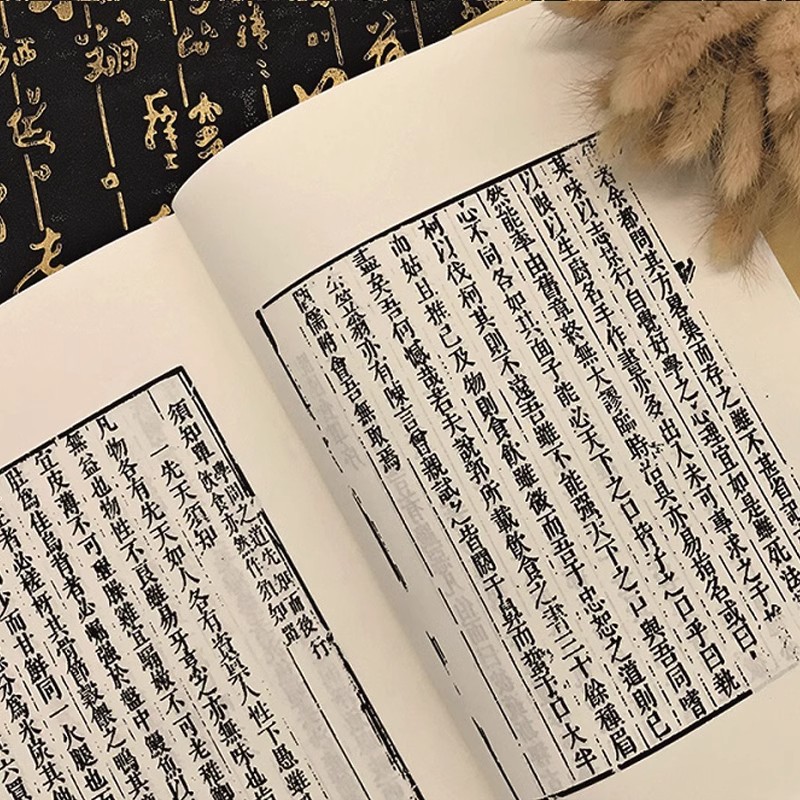 者余都問其方畧集而存之雖不甚省記
某味以志景行自覺好學之心理宜如是雖死法
以限生廚名手作書亦多出入未可專求之于
然能率由舊章終無大謬臨時治具亦易指名或曰
心不同各如其面子能必天下之口皆子之口乎曰執
柯以伐柯其則不遠吾雖不能强天下之口與吾同嗜
而姑且推己及物則食飲雖微而吾于忠恕之道則已
盡矣吾何憾哉若夫說郛所載飲食之書三十餘種眉
公笠翁亦有陳言曾親試之皆閼于鼻而蜇于口大半
陋儒附會吾無取焉
須知單
學問之道先知而後行
飲食亦然作須知單
一先天須知
凡物各有先天如人各有資稟人性下愚雖
無益也物性不良雖易牙烹之亦無味也
宜皮薄不可腥臊雞宜騸嫩不可老稚鯽
肚爲佳烏背者必崛强於盤中鰻魚以
者必槎枒其骨節穀餵之鴨其
少而甘鮮同一火腿也而
分爲冰炭其他
六買